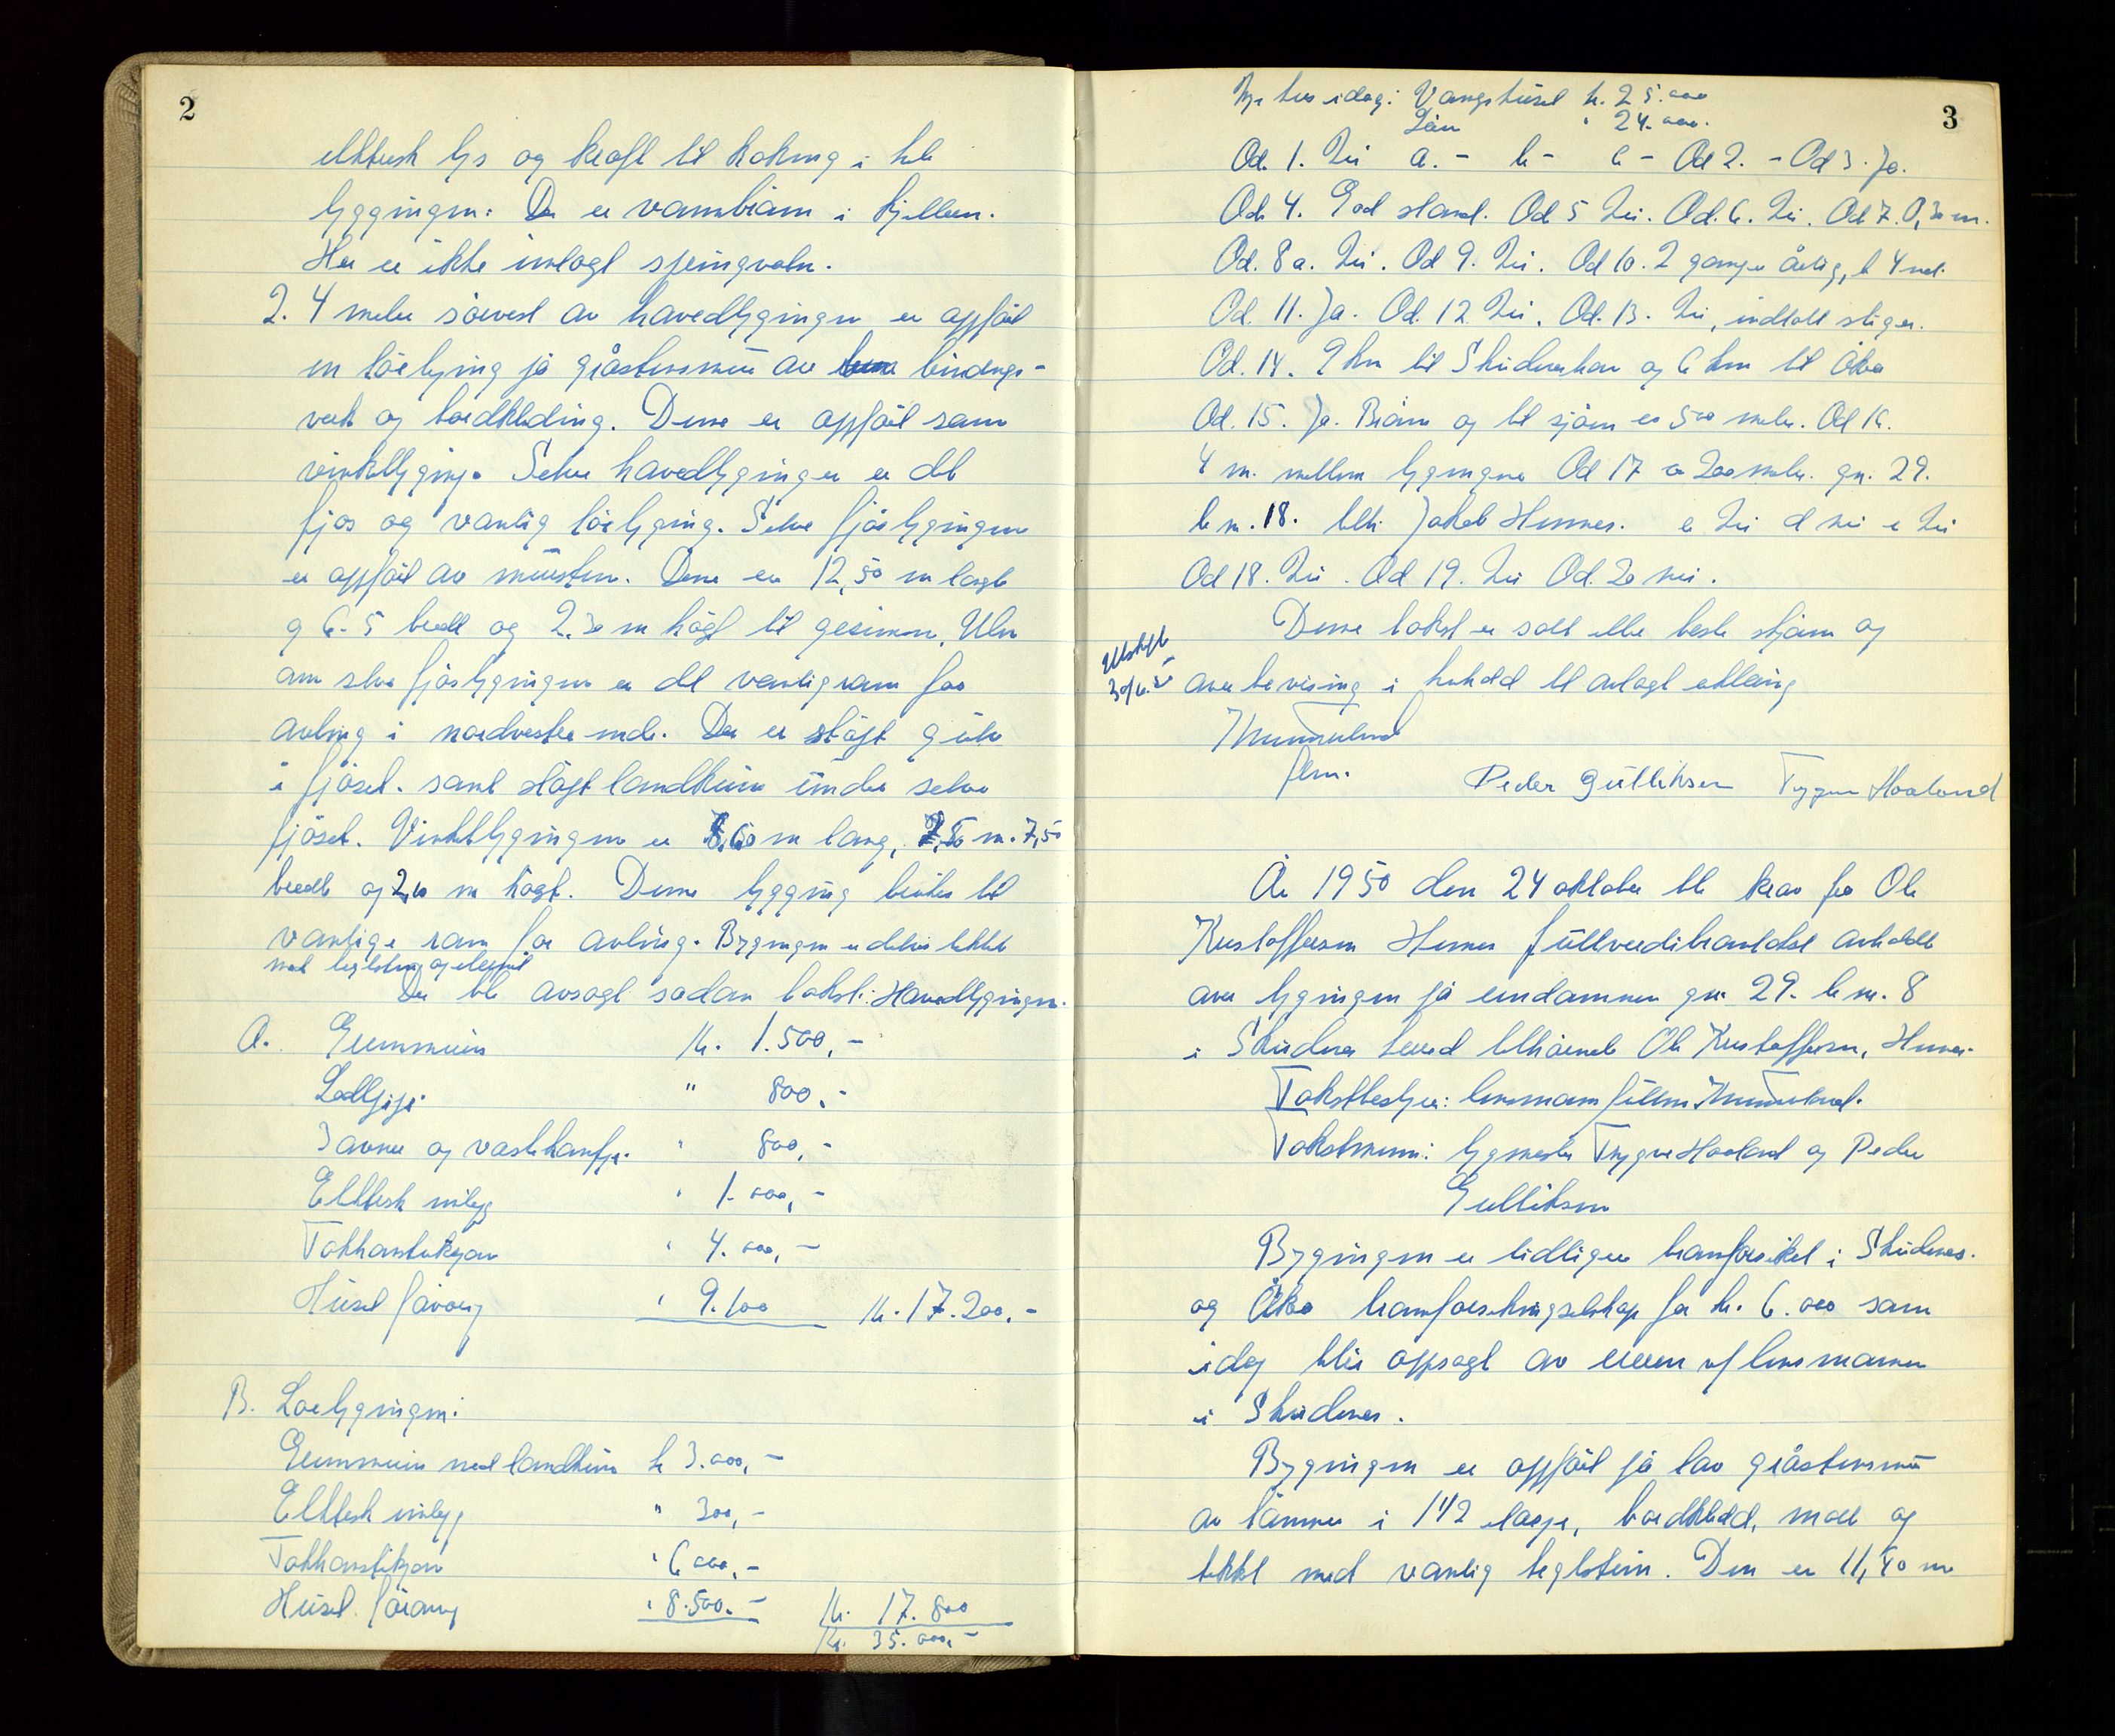 2
elektrisk lys og kraft til koking i hele
bygningen. Der er vannbrønn i kjelleren.
Her er ikke innlagt springvatn.
2. 4 meter sørvest av hovedbygningen er oppført
en løebygning på gråstensmur av bindings-
verk og bordkleding. Denne er oppført som
vinkelbygning. Selve hovedbygningen er delt
fjøs og vanlig løebygning. Selve fjøsbygningen
er oppført av mursten. Denne er 12,50 m lagt
og 6.5 bredt og 2.30 m høgt til gesimsen. Uten
om selve fjøsbygningen er det vanlig rom for
avling i nordvestre ende. Der er støpt gulv
i fjøset. samt støpt landkum under selve
fjøset. Vinkelbygningen er 8,60 m lang, m. 7,50
bredt og 2,60 m høgt. Denne bygging brukes til
vanlige rom for avling. Bygningen er delvis tekket
med teglsten og eternit
Der ble avsagt sådan takst: Hovedbygningen.
A. Grunnmuren Kr. 1.500,-
Loddpipe " 800,-
3 ovner og vaskekomfyr. " 800,-
Elektrisk innlegg " 1.000,-
Takkonstruksjon " 4.000,-
Huset forøvrig " 9.100 Kr. 17.200,-
B. Løebygningen:
Grunnmuren med landkum kr 3.000,-
Elektrisk innlegg " 300,-
Takkonstruksjon " 6000,-
Huset forøvrig " 8.500.- Kr. 17.800
Kr. 35.000,-
3
Nye hus idag: Vangshuset kr. 25.000
Løen " 24.000.
Od. 1. Nei a. - b - c - Od 2. - Od 3. Ja.
Od. 4. God stand. Od 5 Nei. Od. 6. Nei. Od 7. 0,30 m.
Od. 8 a. Nei. Od 9. Nei. Od 10. 2 ganger årlig, b 4 md.
Od. 11. Ja. Od. 12. Nei. Od. 13. Nei, inntatt stiger.
Od. 14. 9 km til Skudeneshavn og 6 km til Åkra
Od. 15. Ja. Brønn og til sjøen ca 500 meter. Od 16.
4 m. mellom bygningene Od 17 a 200 meter. gn. 29.
b. nr. 18. tilh. Jakob Hemnes. c Nei d nei e Nei
Od 18. Nei. Od 19. Nei Od. 20 nei.
Denne takst er satt etter beste skjønn og
overbevising i henhold til avlagt erklæring
Utskrift
30/10.50
fullm.
Peder Gulliksen Trygve Hoaland
År 1950 den 24 oktober ble krav fra Ole
Kristoffersen Hemnes fullverdibranntakst avholdt
over bygningen på eiendommen gnr. 29. b. nr. 8
i Skudenes herred tilhørende Ole Kristoffersen, Hemnes.
Takstbestyrer: lensmannsfullm.
Takstmenn: bygmester Trygve Hoaland og Peder
Gulliksen
Bygningen er tidligere brannforsikret i Skudenes.
og Åkra brannforsikringselskap for kr. 6.000 som
idag blir oppsagt av eieren v/ lensmannen
i Skudenes.
Bygningen er oppført på lav gråstensmur
av tømmer i 1 1/2 etasje, bordkledd, malt og
tekket med vanlig teglstein. Den er 11,40 m